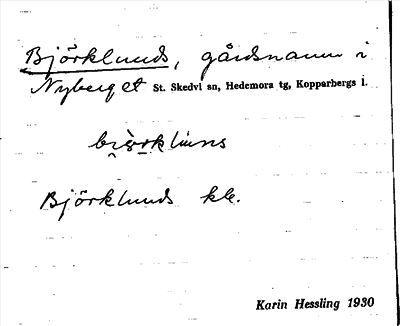 Björklunds, gårdsnamn i
Nyberget St. Skedvi sn, Hedemora tg, Kopparbergs l.
Björklunds kb.
Karin Hessling 1930